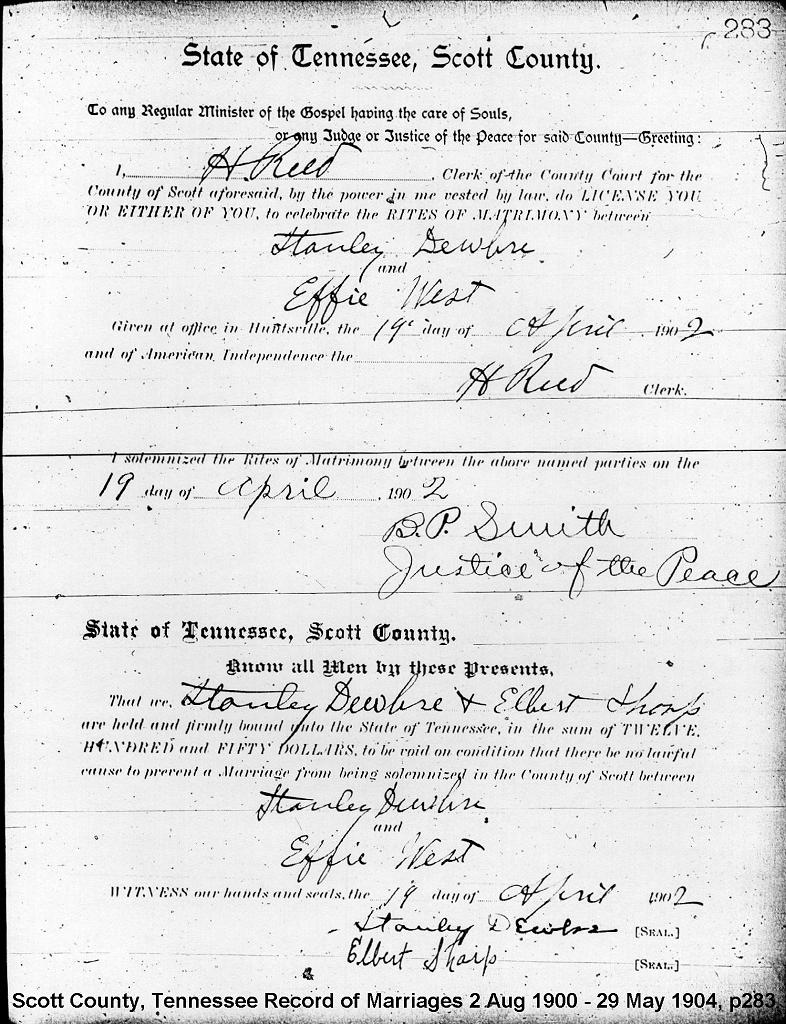 283
State of Tennessee, Scott County.
To any Regular Minister of the Gospel having the care of Souls,
or any Judge or Justice of the Peace for said County—Greeting:
I, H. Reed, Clerk of the County Court for the
County of Scott aforesaid, by the power in me vested by law, do LICENSE YOU
OR EITHER OF YOU, to celebrate the RITES OF MATRIMONY between
Stanley Dewbre
and
Effie West
Given at office in Huntsville, the 19 day of April 1902
and of American Independence the
H Reed Clerk.
I solemnized the Rites of Matrimony between the above named parties on the
19 day of April, 1902
B.P. Smith
Justice of the Peace
State of Tennessee, Scott County.
Know all Men by these Presents,
That we, Stanley Dewbre & Elbert Sharp
are held and firmly bound unto the State of Tennessee, in the sum of TWELVE
HUNDRED and FIFTY DOLLARS, to be void on condition that there be no lawful
cause to prevent a Marriage from being solemnized in the County of Scott between
Stanley Dewbre
and
Effie West
WITNESS our hands and seals, the 19 day of April 1902
Stanley Dewbre [SEAL.]
Elbert Sharp [SEAL.]
Scott County, Tennessee Record of Marriages 2 Aug 1900 - 29 May 1904, p283